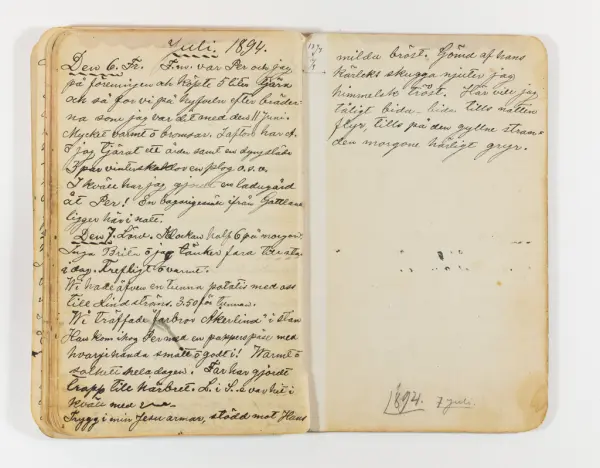 Juli. 1894.
Den 6. Fr. F.m. var Per och jag
på föreningen och köpte 5 liter Tjära
och så for vi på Hyfveln efter bräder-
na som jag var dit med den 11 Juni.
Mycket varmt o bromsar. I afton har
o jag tjärat ett
I par vinter en plog o. s. v.
I kväll har jag gjordt en ladugård
åt Per! En ifrån Gottland
ligger här i natt.
Den 7. Lörd. Klockan half 6 på morgon
Inga Brita o jag tänker fara till
i dag. Trefligt o varmt.
Vi hade äfven en tunna potatis med oss
till Lindströms. 3.50 för tunnan.
Vi träffade "farbror Åkerlind" i stan
Han kom ihog Per med en papperspåse med
hvarjehanda smått o godt i! Warmt o
hela dagen. Far har gjordt
trapp till härbret. L. i S. var hit i
kväll med
Trygg i min Jesu armar, stödd mot Hans
milda bröst. Gömd af hans
kärleks skugga njuter jag
himmelsk tröst. Här vill jag
tåligt bida - bida tills natten
flyr, tills på den gyllne stran-
den morgone härligt gryr.
1894. 7 juli.